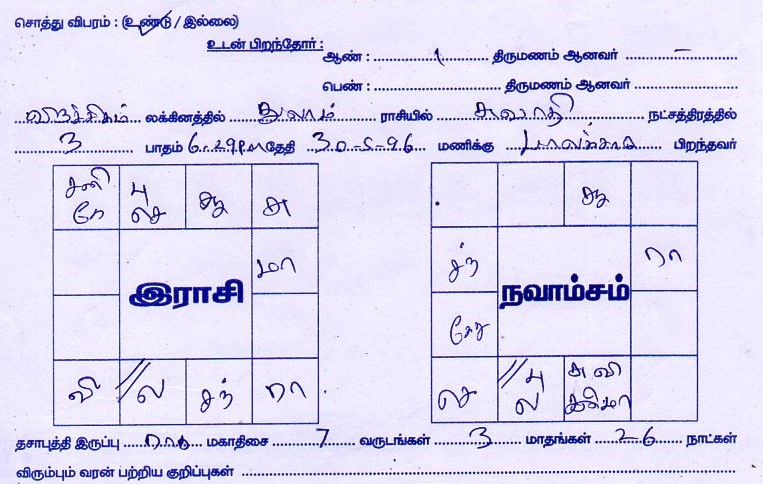 சொத்து விபரம் : (உண்டு / இல்லை)
உடன் பிறந்தோர் :
ஆண் : 1 திருமணம் ஆனவர் –
பெண் : திருமணம் ஆனவர்
விருச்சிகம் லக்கினத்தில் துலாம் ராசியில் சுவாதி நட்சத்திரத்தில்
3 பாதம் 6.29PM தேதி 30-5-96 மணிக்கு பிறந்தவர்
சனி கே பு செ சூ சு
மா
இராசி
வி ல சந் ரா
சூ
சந் ரா
நவாம்சம்
கேது
செ பு ல சு வி சனி மா
தசாபுத்தி இருப்பு ராகு மகாதிசை 7 வருடங்கள் 3 மாதங்கள் 26 நாட்கள்
விரும்பும் வரன் பற்றிய குறிப்புகள்